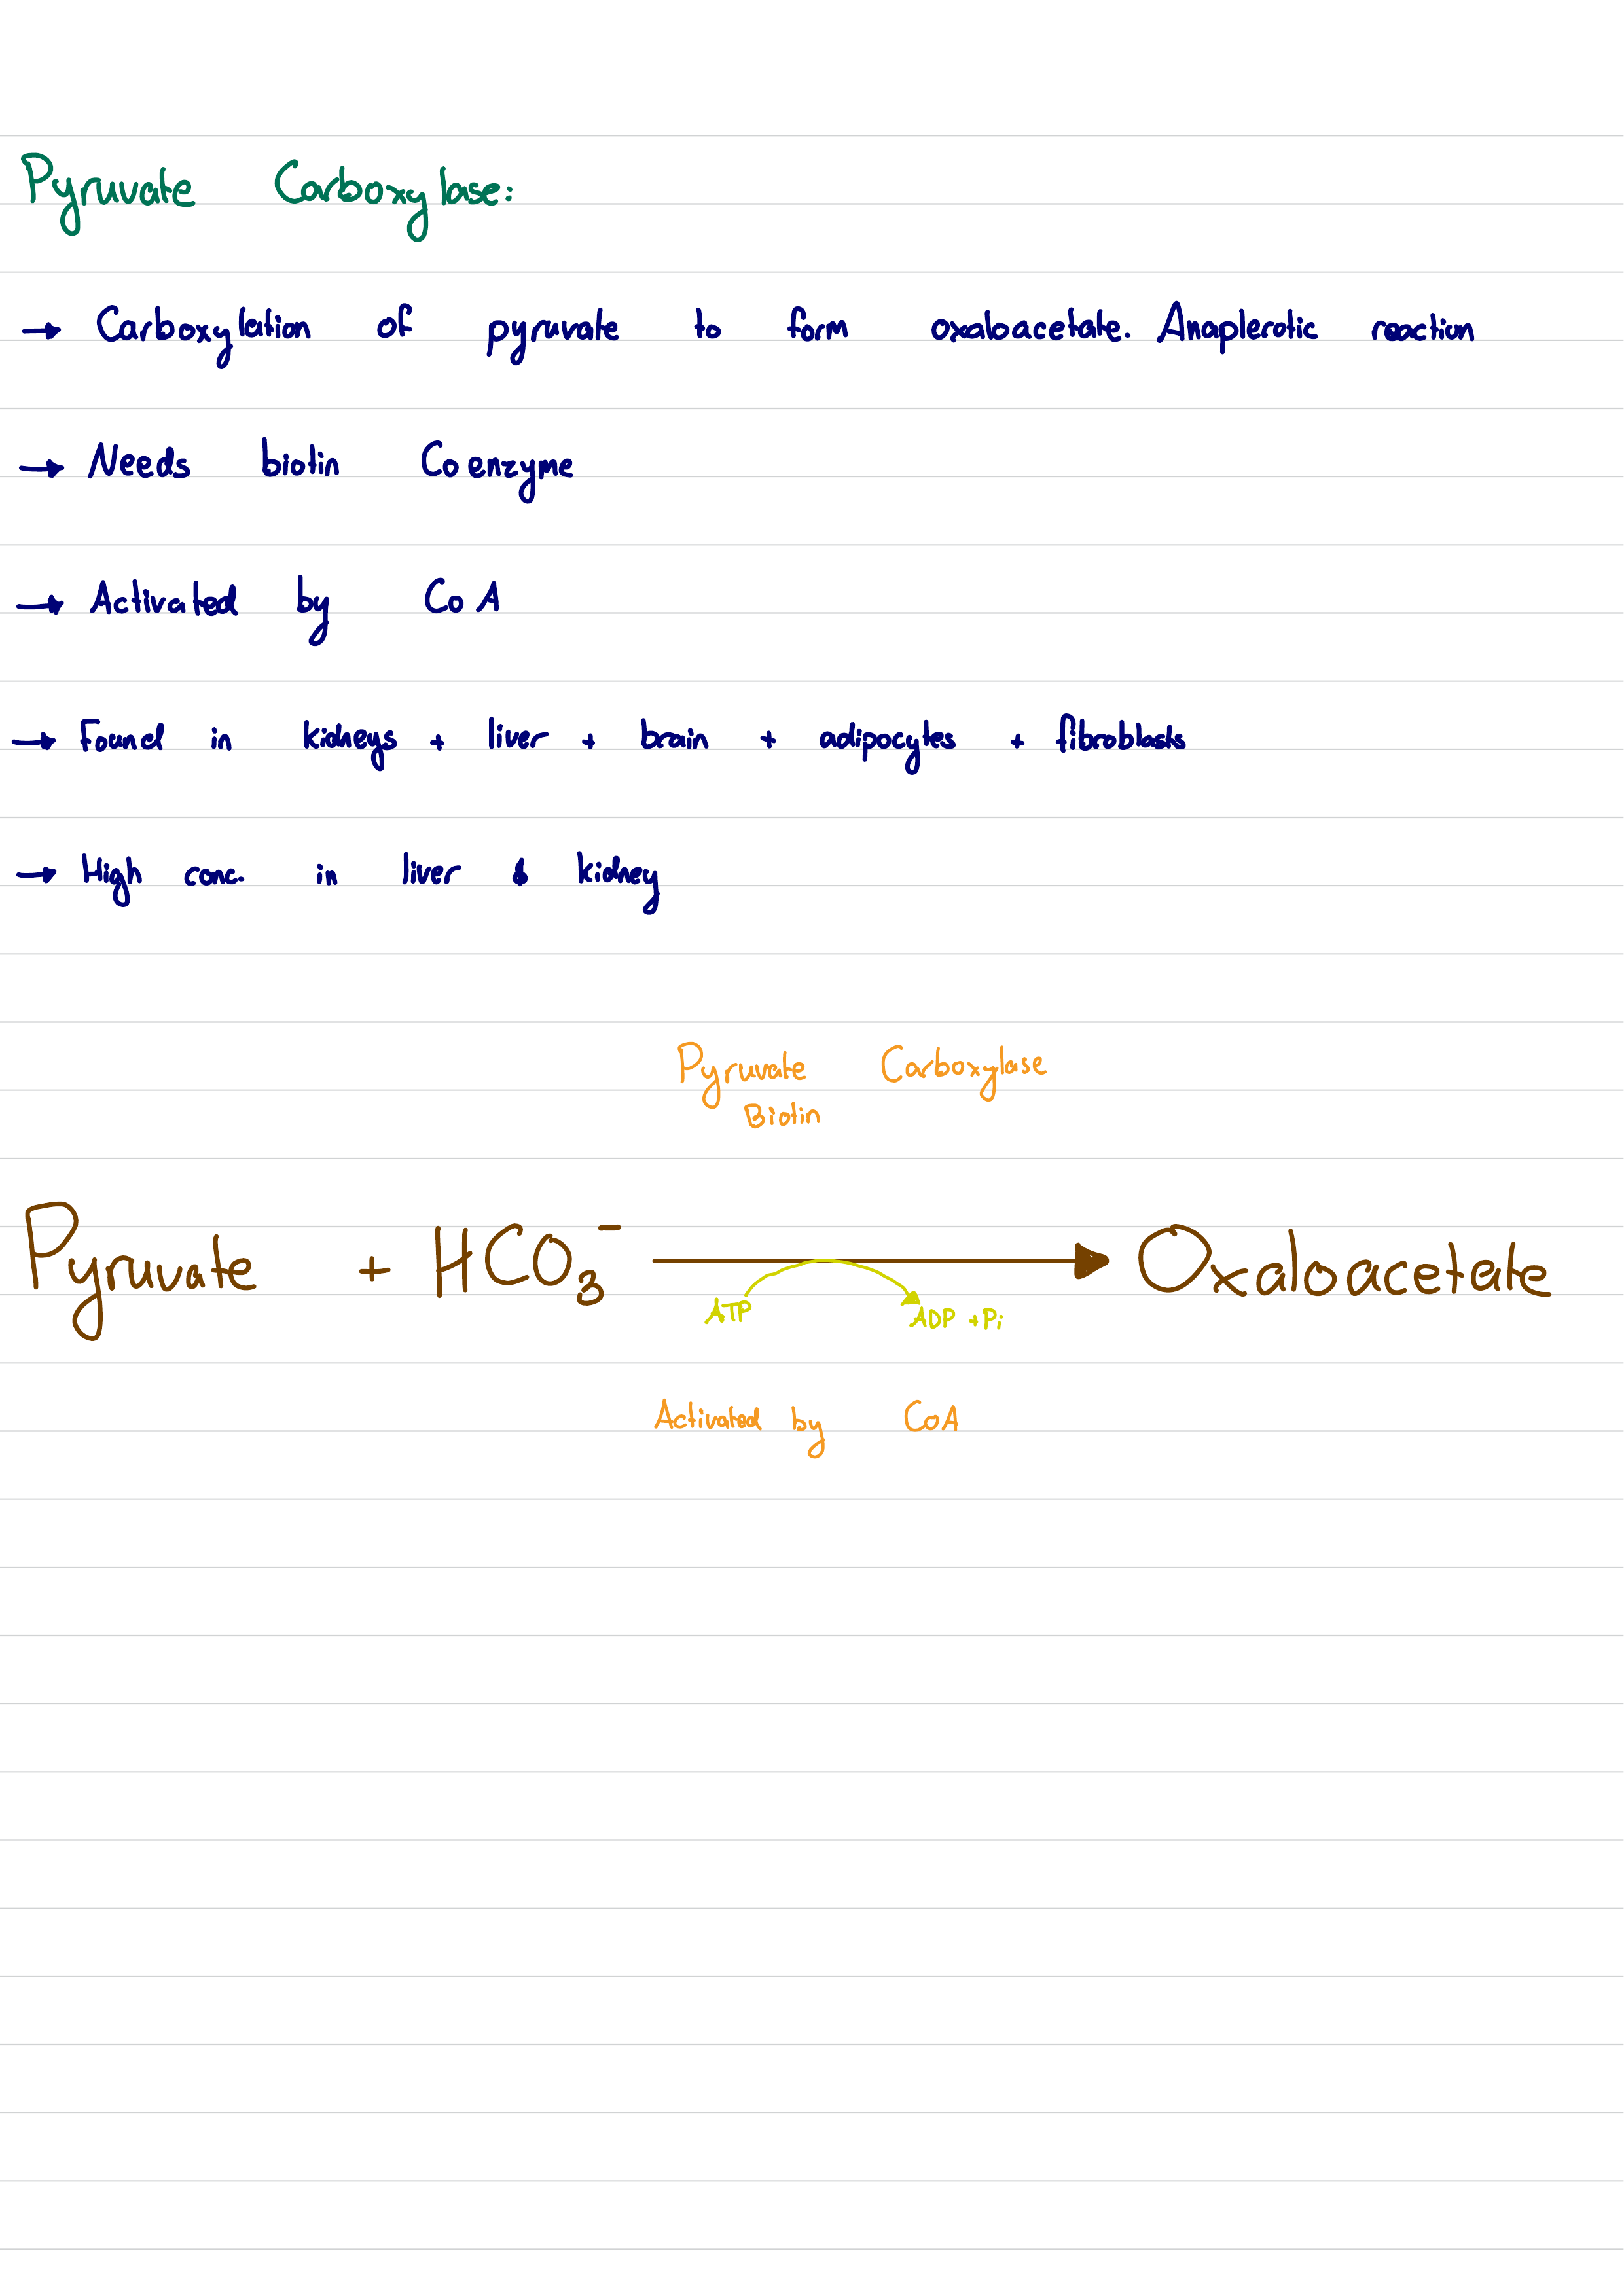 Pyruvate Carboxylase:
→ Carboxylation of pyruvate to form oxaloacetate. Anaplerotic reaction
→ Needs biotin Coenzyme
→ Activated by CoA
→ Found in kidneys + liver + brain + adipocytes + fibroblasts
→ High conc. in liver & kidney
Pyruvate Carboxylase
Biotin
Pyruvate + HCO₃⁻ → Oxaloacetate
ATP ADP + Pi
Activated by CoA